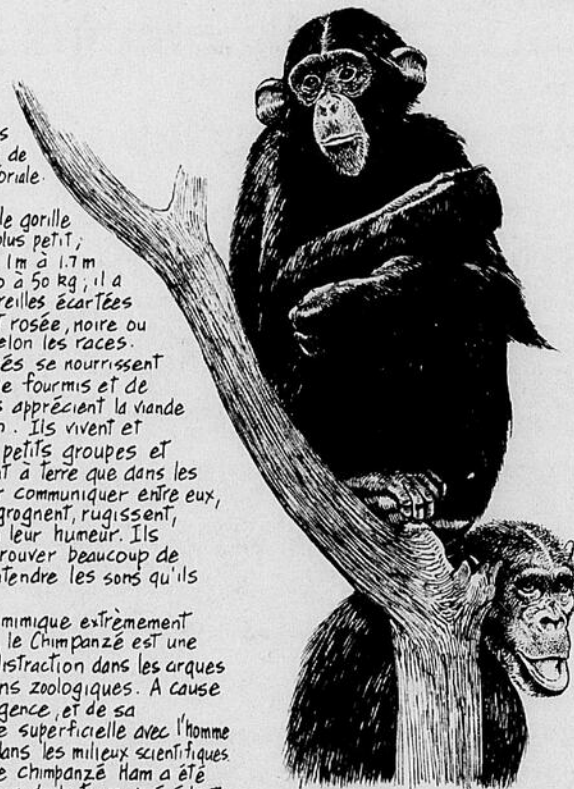 de
le gorille
plus petit;
1m à 1.7m
à 50 kg; il a
reilles écartées
rosée, noire ou
elon les races.
és se nourrissent
e fourmis et de
s apprécient la viande
n. Ils vivent et
petits groupes et
t à terre que dans les
r communiquer entre eux,
grognent, rugissent,
leur humeur. Ils
rouver beaucoup de
ntendre les sons qu'ils
mimique extrèmement
le Chimpanzé est une
distraction dans les cirques
ns zoologiques. A cause
igence, et de sa
e superficielle avec l'homme
dans les milieux scientifiques.
e chimpanzé Ham a été